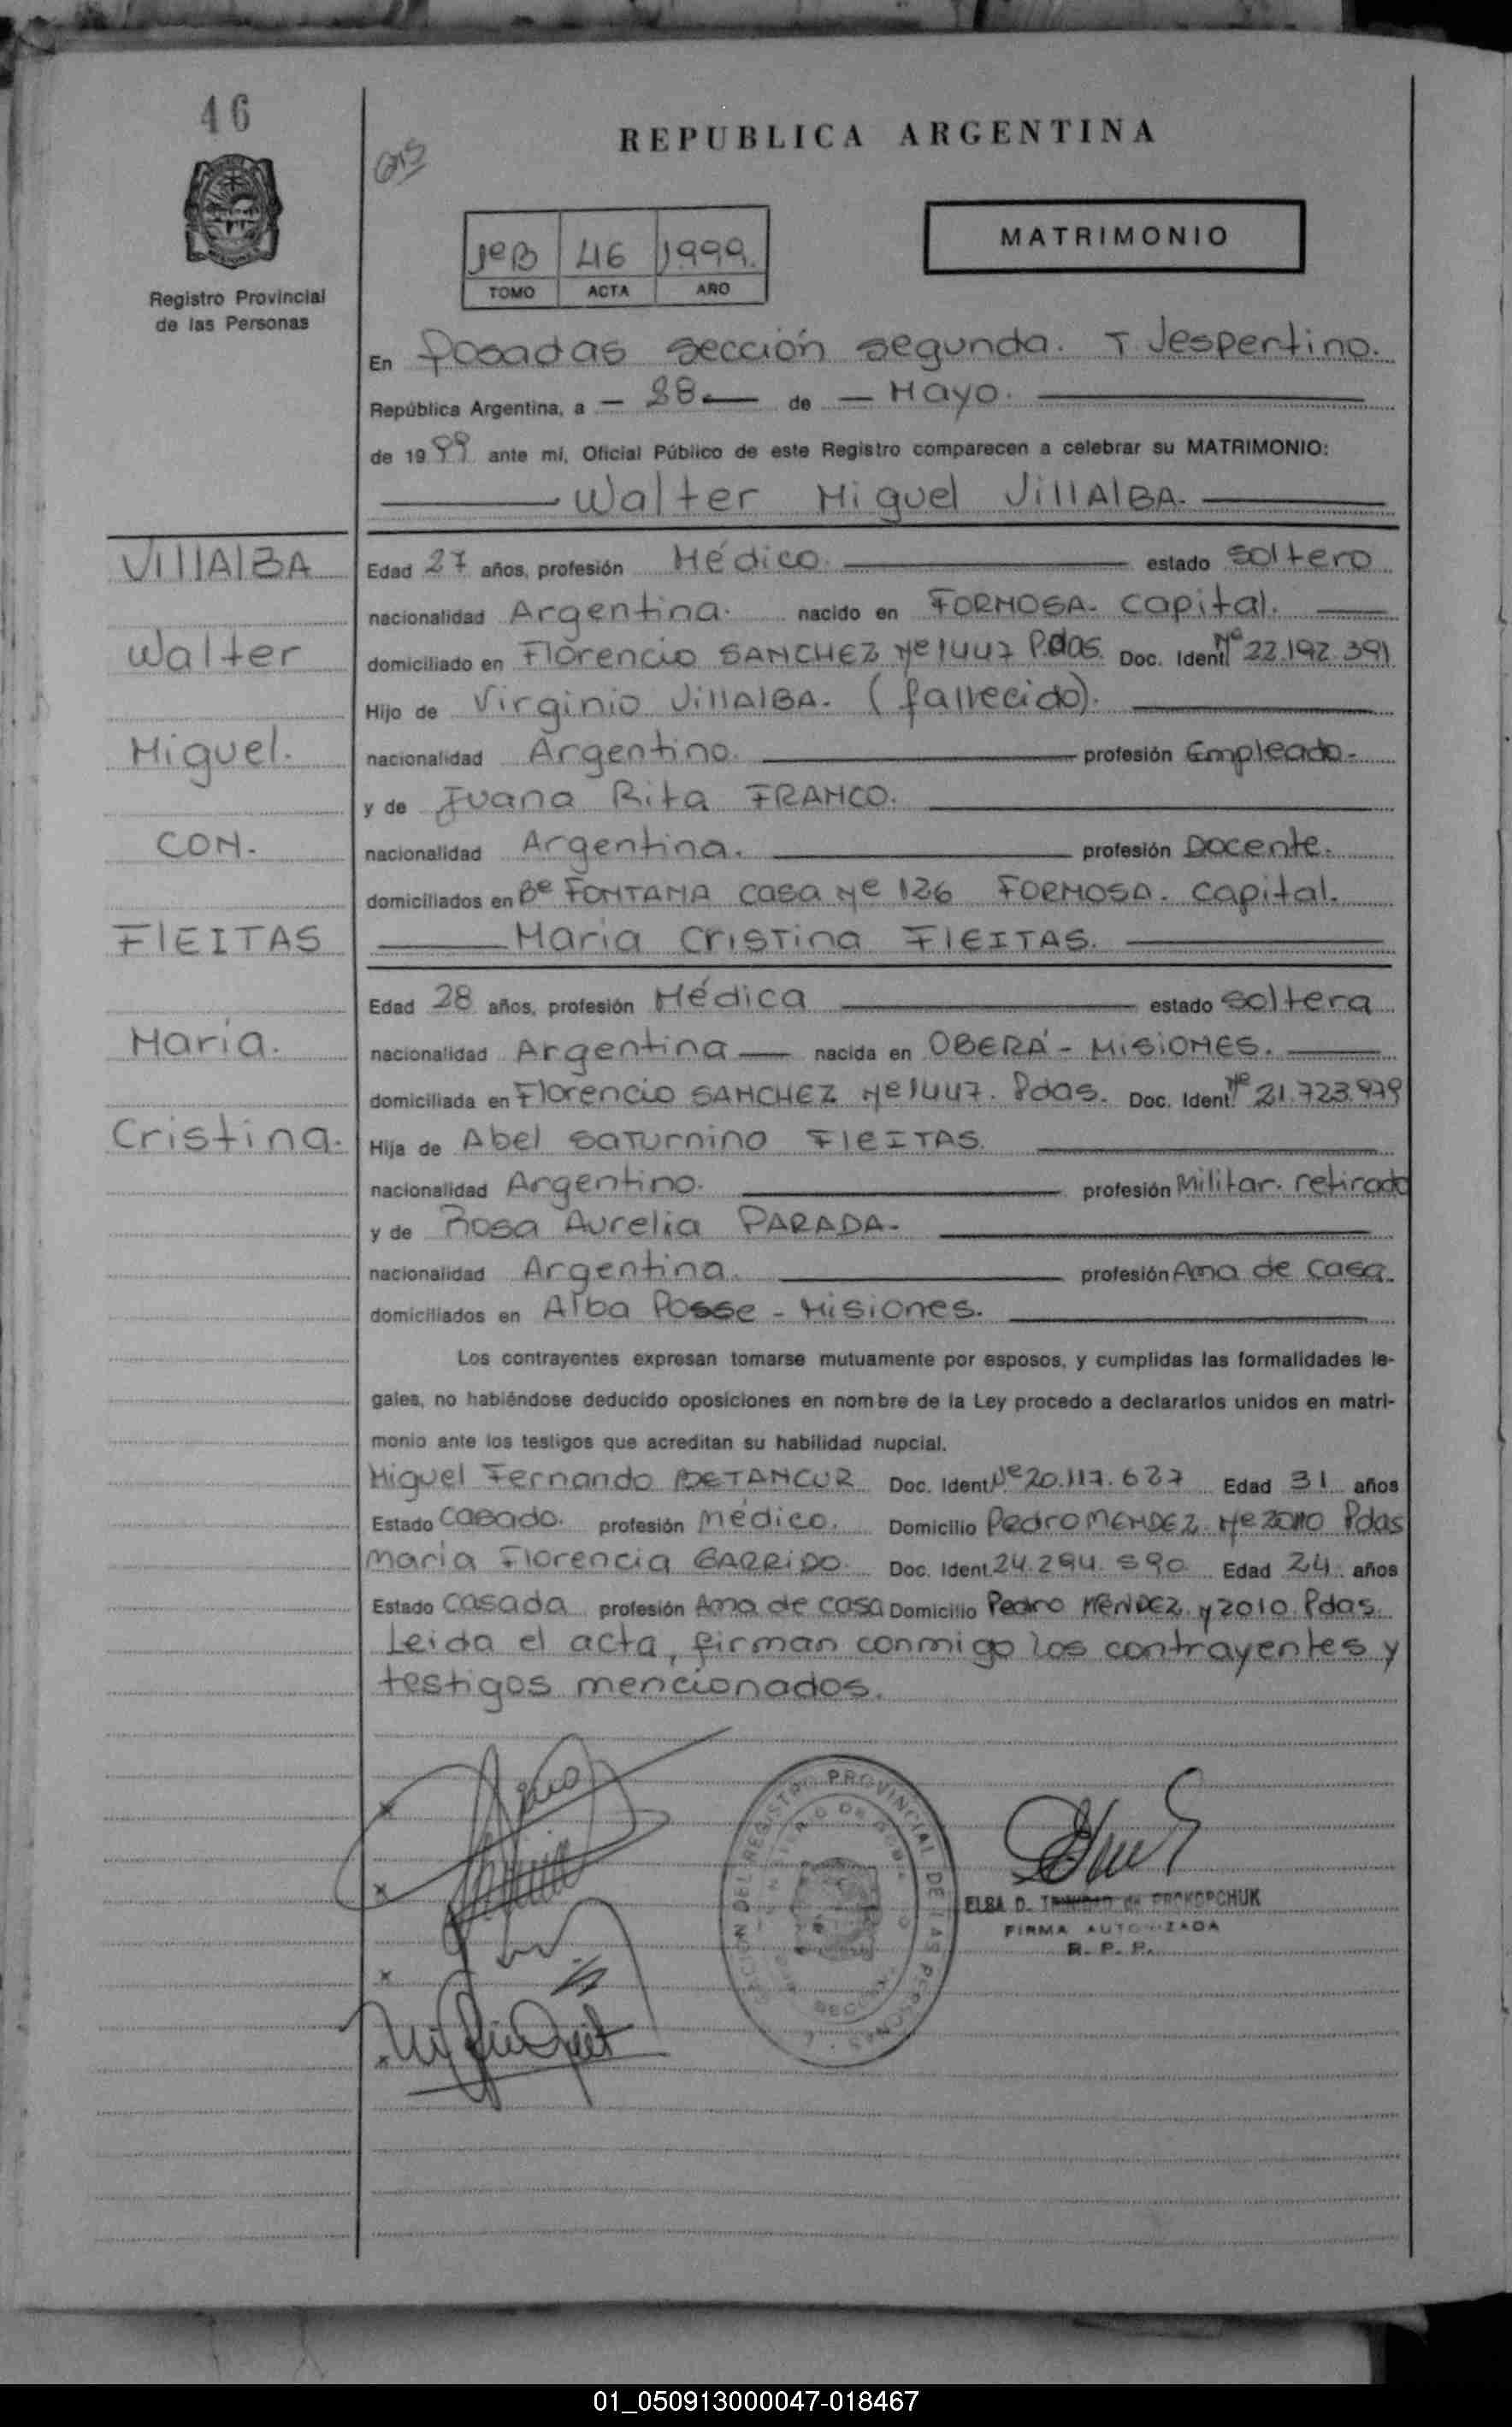 46
REPUBLICA ARGENTINA
MATRIMONIO
1º B 46 1999.
TOMO ACTA AÑO
Registro Provincial
de las Personas
En Posadas sección segunda. T. Vespertino.
República Argentina, a — 28 — de — Mayo.
de 1999 ante mí, Oficial Público de este Registro comparecen a celebrar su MATRIMONIO:
Walter Miguel VIllAlBA.
VIllAlBA
Walter
Miguel.
CON.
FlEITAS
María.
Cristina.
Edad 27 años, profesión Médico. estado soltero
nacionalidad Argentina. nacido en FORMOSA. Capital.
domiciliado en Florencio SANCHEZ Nº 1447 Pdas. Doc. Ident. Nº 22.192.391
Hijo de Virginio VillAlBA. (fallecido).
nacionalidad Argentino. profesión Empleado.
y de Juana Rita FRANCO.
nacionalidad Argentina. profesión Docente.
domiciliados en Bº FONTANA casa Nº 126 FORMOSA. Capital.
María Cristina FlEITAS.
Edad 28 años, profesión Médica estado soltera
nacionalidad Argentina — nacida en OBERÁ - MISIONES.
domiciliada en Florencio SANCHEZ Nº 1447. Pdas. Doc. Ident. Nº 21.723.979
Hija de Abel Saturnino FleITAS.
nacionalidad Argentino. profesión Militar. retirado
y de Rosa Aurelia PARADA.
nacionalidad Argentina. profesión Ama de casa.
domiciliados en Alba Posse - Misiones.
Los contrayentes expresan tomarse mutuamente por esposos, y cumplidas las formalidades le-
gales, no habiéndose deducido oposiciones en nombre de la Ley procedo a declararlos unidos en matri-
monio ante los testigos que acreditan su habilidad nupcial.
Miguel Fernando BETANCUR Doc. Ident. Nº 20.117.627 Edad 31 años
Estado Casado. profesión médico. Domicilio Pedro MENDEZ Nº 2010 Pdas
María Florencia GARRIDO. Doc. Ident. 24.294.590 Edad 24 años
Estado Casada profesión Ama de casa Domicilio Pedro MENDEZ y 2010 Pdas.
Leida el acta, firman conmigo los contrayentes y
testigos mencionados.
REGISTRO PROVINCIAL DE LAS PERSONAS
ELBA D. TRINIDAD de PROKOPCHUK
FIRMA AUTORIZADA
R. P. P.
01_050913000047-018467